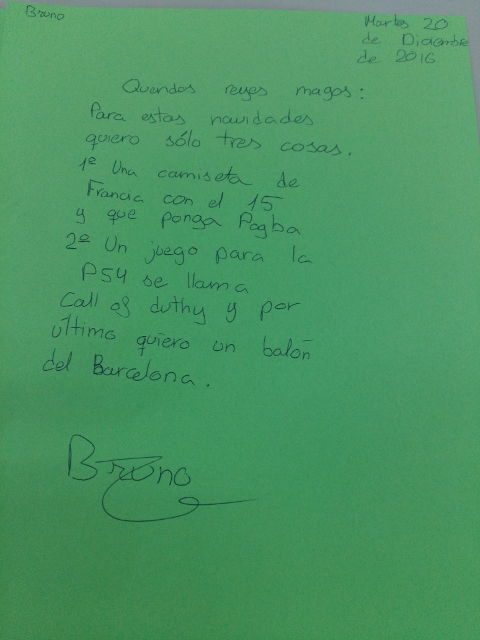 Bruno
Martes 20
de Diciembre
de 2016
Queridos reyes magos:
Para estas navidades
quiero sólo tres cosas.
1º Una camiseta de
Francia con el 15
y que ponga Pogba
2º Un juego para la
PS4 se llama
Call of duthy y por
último quiero un balón
del Barcelona.
Bruno